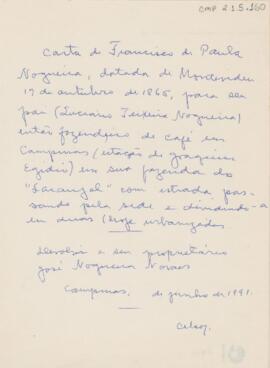 CMP 2.1.5.160
Carta de Francisco de Paula
Nogueira, datada de Montevideu
19 de outubro de 1865, para seu
pai (Luciano Teixeira Nogueira)
então fazendeiro de café em
Campinas (estação de Joaquim
Egidio) em sua fazenda do
"Laranjal" com estrada pas-
sando pela sede e dividindo-a
em duas (hoje urbanizadas
Devolvi a seu proprietário
José Nogueira Novaes
Campinas, de junho de 1991.
Celso